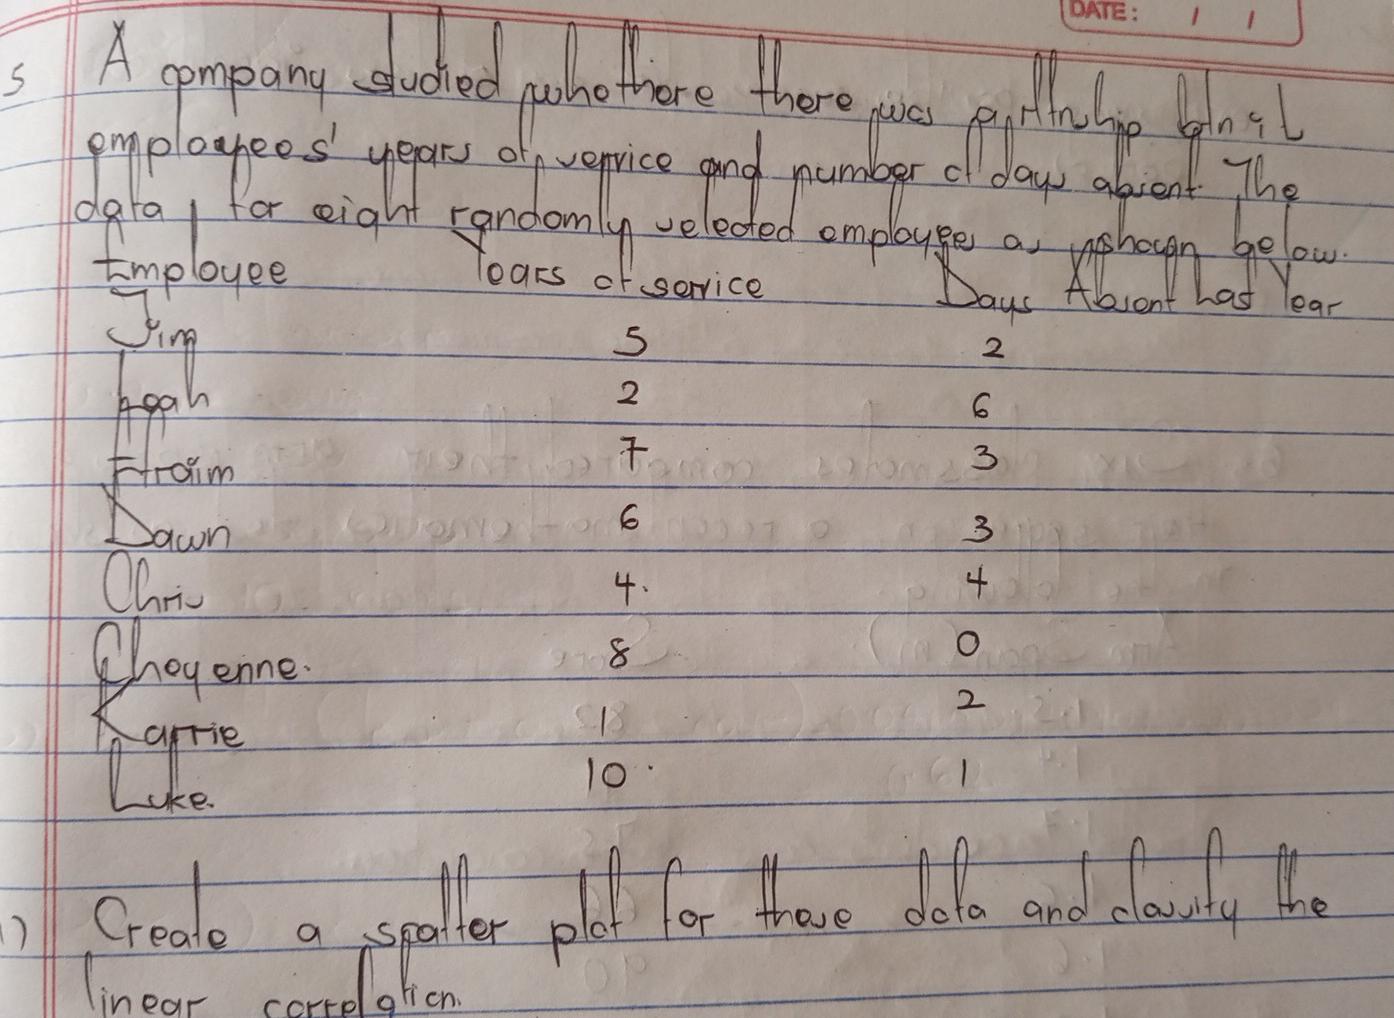 DATE: / /
5 A company studied whethere there was a
employees' years of service and number of days absent. The
data, for eight randomly selected employees as shown below.
Employee Years of service Days Absent Last Year
Jim 5 2
Leah 2 6
Efraim 7 3
Dawn 6 3
Chris 4 4
Cheyenne. 8 0
Karrie 1 2
Luke. 10 1
1) Create a scatter plot for these data and classify the
linear correlation.